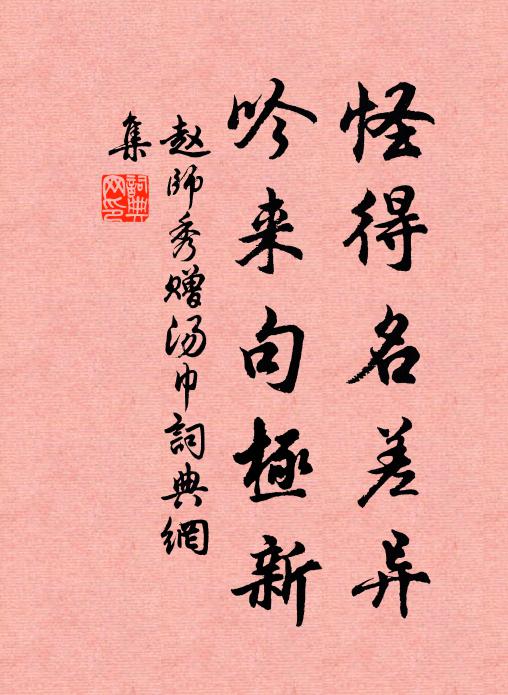 怪得名差异
吟来句極新
赵師秀赠汤巾詞典網
集
詞典
网印